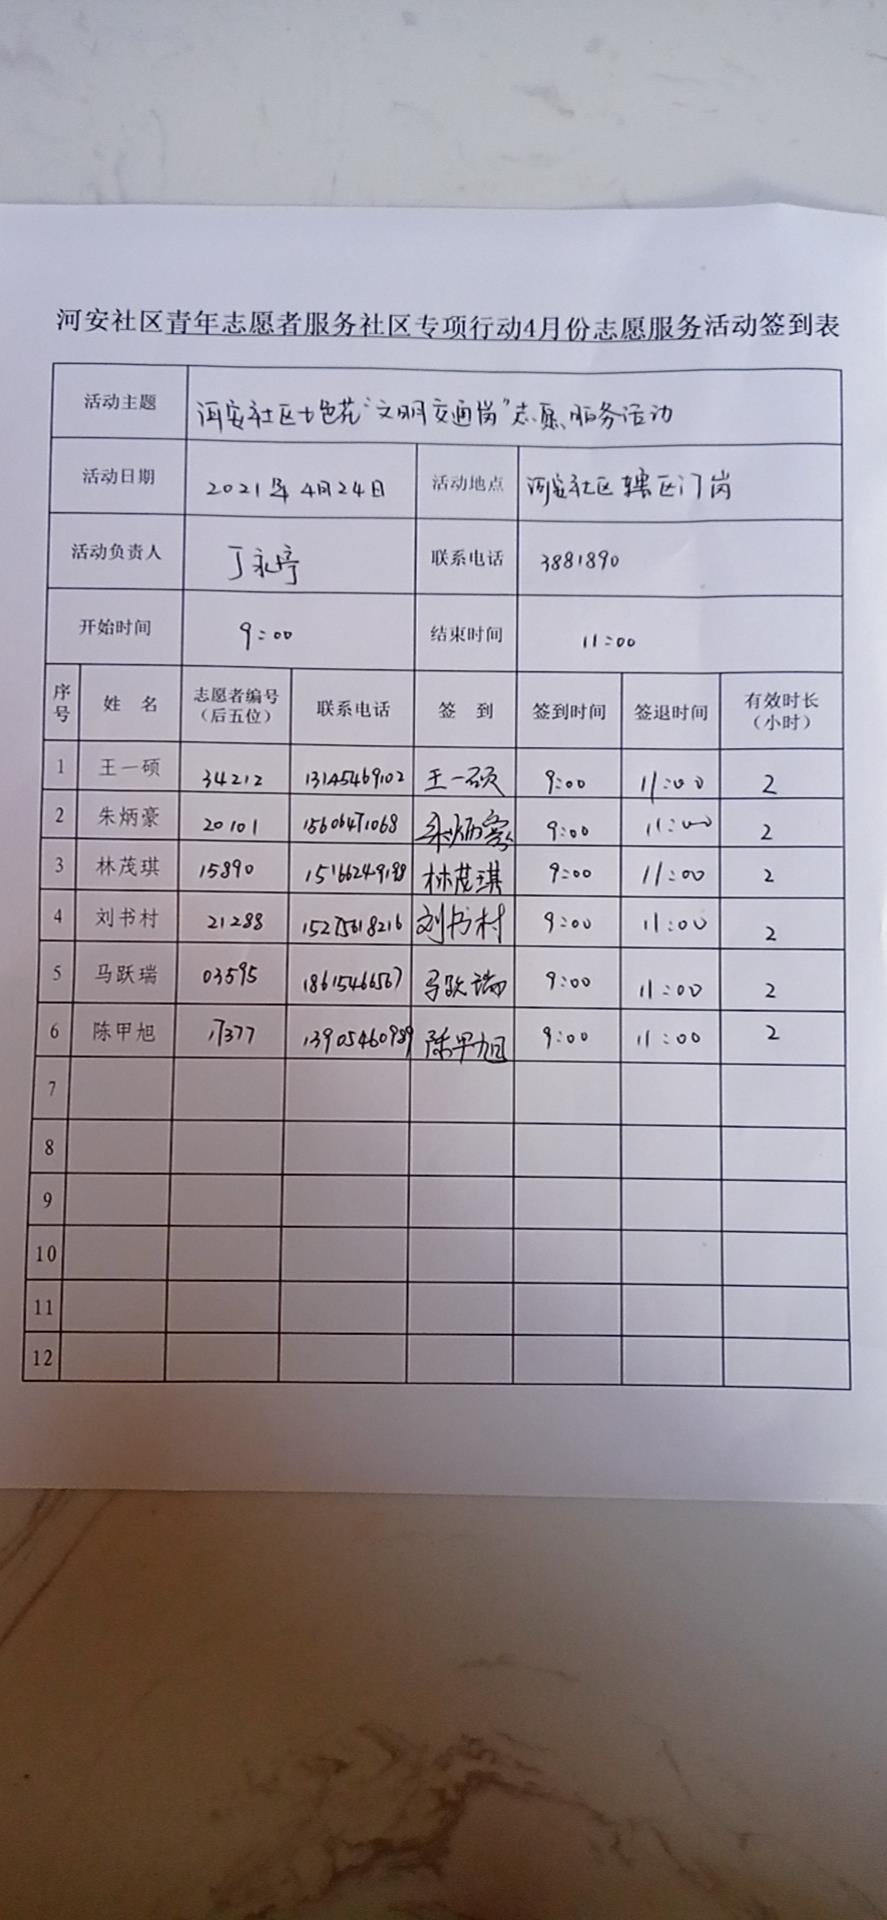 河安社区青年志愿者服务社区专项行动4月份志愿服务活动签到表
活动主题 河安社区七色花“文明交通岗”志愿服务活动
活动日期 2021年4月24日 活动地点 河安社区辖区门岗
活动负责人 丁永婷 联系电话 3881890
开始时间 9:00 结束时间 11:00
序号 姓 名 志愿者编号（后五位） 联系电话 签 到 签到时间 签退时间 有效时长（小时）
1 王一硕 34212 13145469102 王一硕 9:00 11:00 2
2 朱炳豪 20101 15606471068 朱炳豪 9:00 11:00 2
3 林茂琪 15890 林茂琪 9:00 11:00 2
4 刘书村 21288 15275618216 刘书村 9:00 11:00 2
5 马跃瑞 03595 18615466567 马跃瑞 9:00 11:00 2
6 陈甲旭 17377 13905460989 陈甲旭 9:00 11:00 2
7
8
9
10
11
12